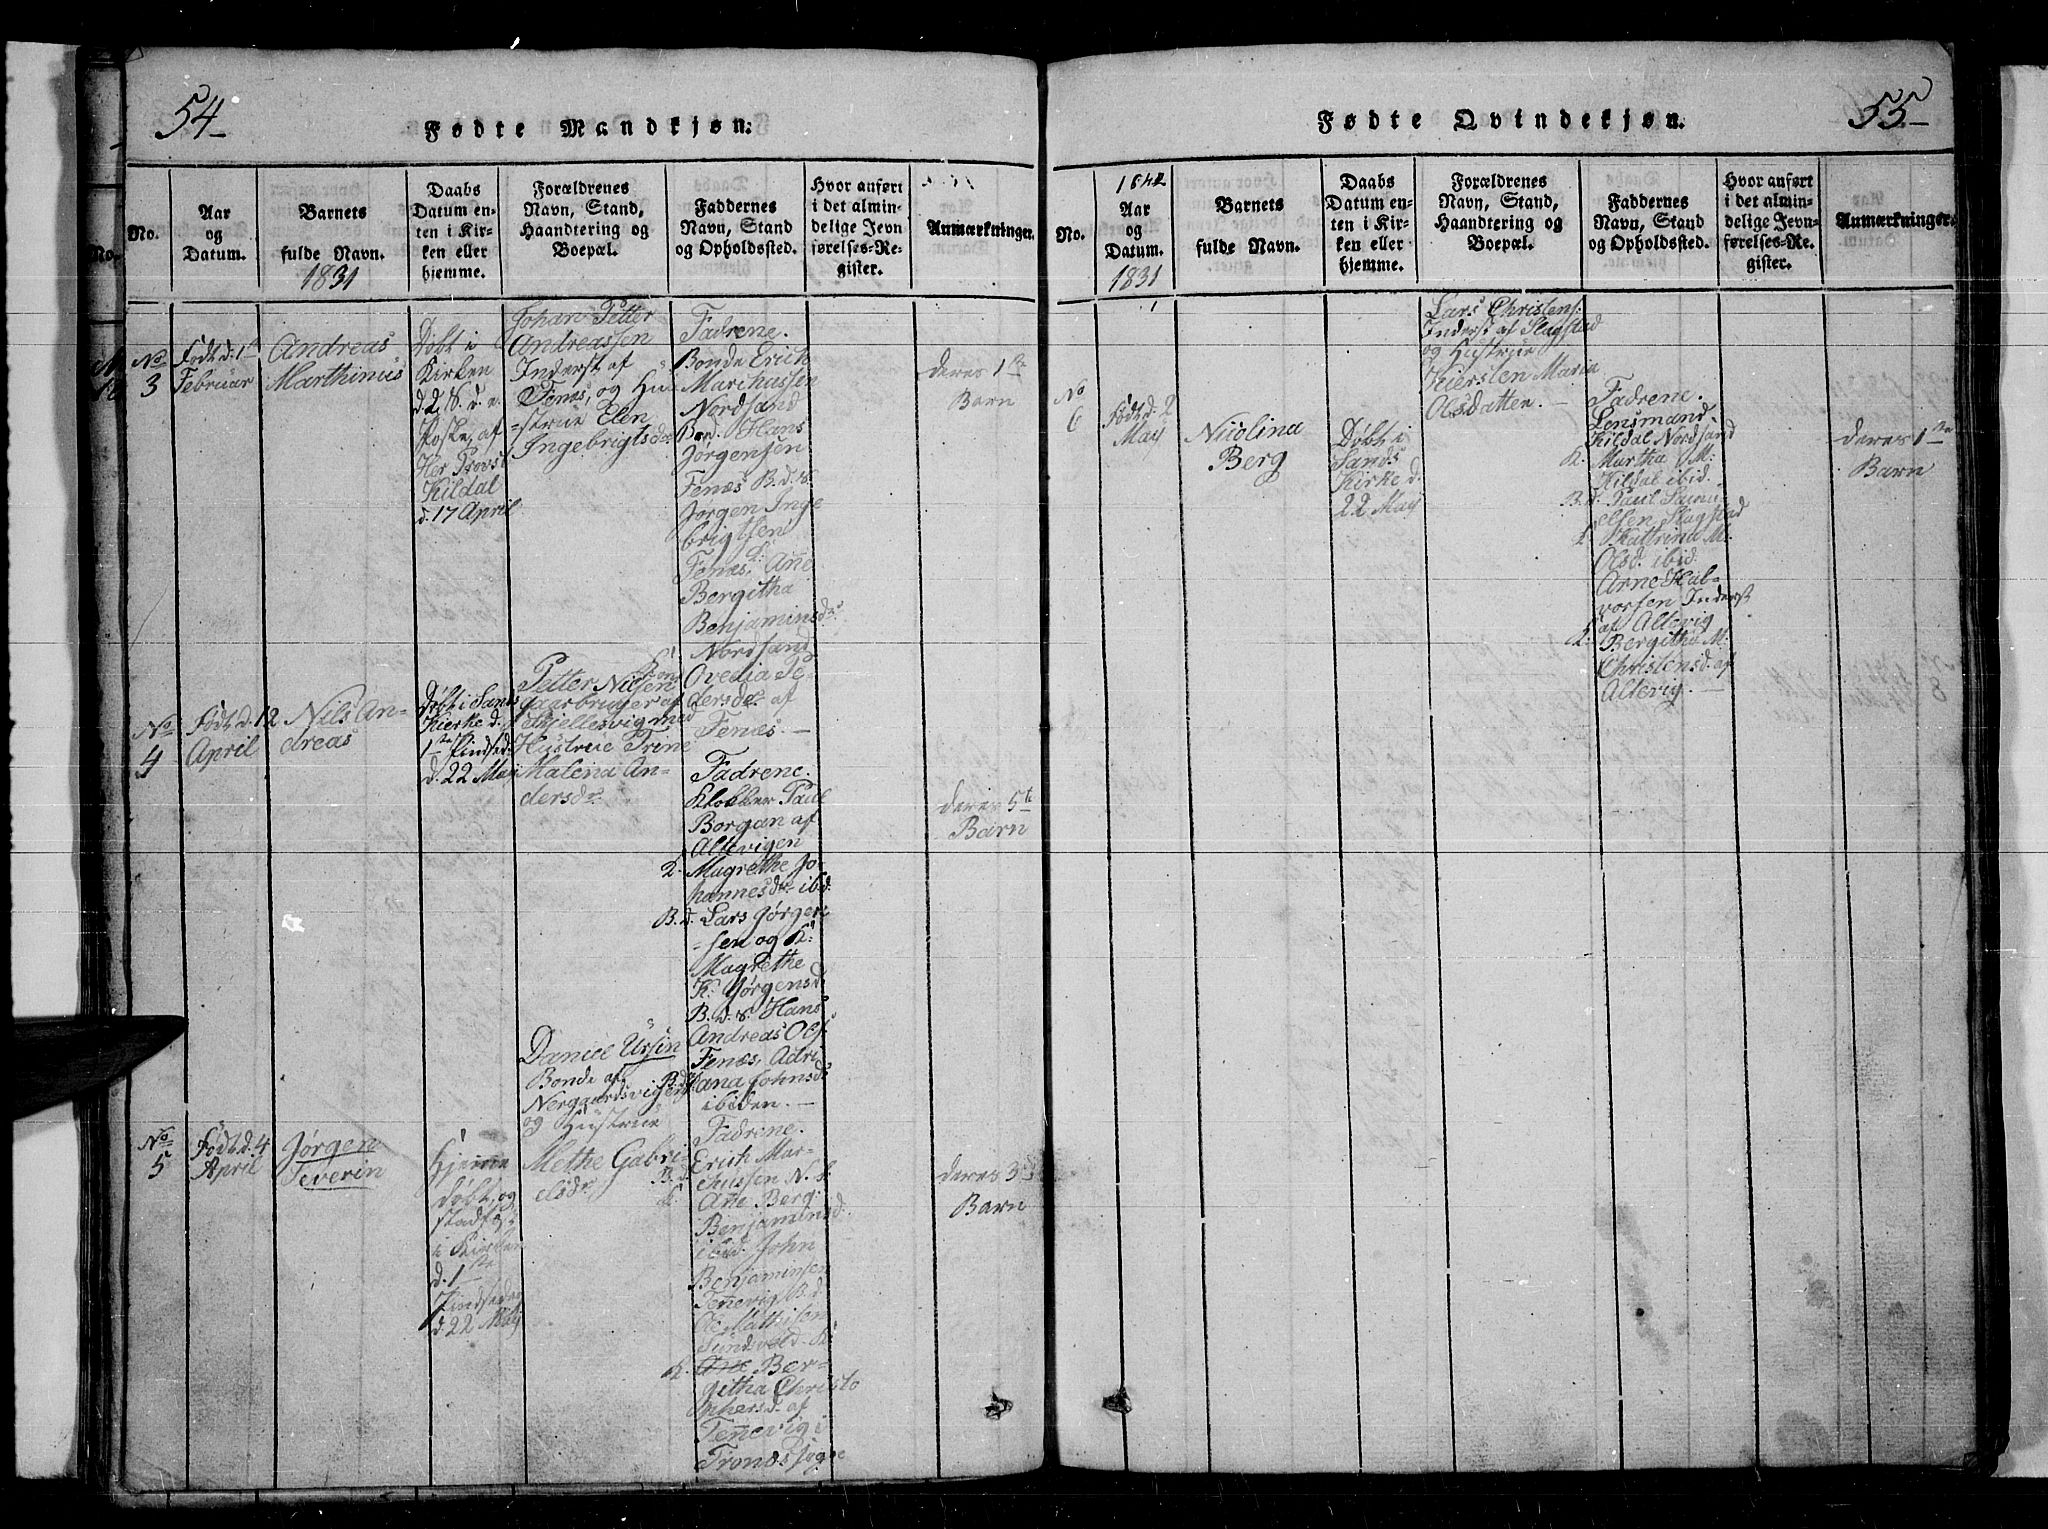 54
Fødte Mandkjøn.
No.
No.
Aar
og
Datum.
Barnets
fulde Navn.
1831
Daabs
Datum en-
ten i Kir-
ken eller
hjemme.
Forældrenes
Navn, Stand,
Haandtering og
Boepæl.
Faddernes
Navn, Stand
og Opholdssted.
Hvor anført
i det almin-
delige Jevn
førelses-Re-
gister.
Anmærkninger.
No
3
Født d. 1
Februar
Andreas
Marthinus
Døbt i
Kirken
d. 2 S. d. e.
Poske, af
Her Provst
Kildal
d. 17 April
Johan Petter
Andreassen
Inderst af
Fenæs, og Hu
=strue Elen
Ingebrigtsdr
Fadrene.
Bonde Erich
Marchussen
Nordsand
Hans
Jørgensen
Fenæs B. d. K.
Jørgen Inge
brigtsen
Fenæs, Ane
Bergitha
Benjaminsdr
Nordsand
Ovedia Pe-
dersdr af
Fenæs. —
deres 1te
Barn
No
4
Født d. 12
April
Nils An-
dreas
Døbt i Sands
Kierke d.
1te Pindsed.
d. 22 May
Petter Nilsen
Gaarbruger af
Kjellesvig med
Hustrue Trine
Malena An-
dersdr
Fadrene.
Klokker Paul
Borgan af
Altevigen
K. Magrethe Jo-
hannesdr ibid.
B. d. Lars Jørgen
=sen og K.
Magrethe
K. Jørgensd.
B. d. S. Hans
Andreas Ols.
Fenæs, Adri
ana Johnsdr
ibiden. —
deres 5te
Barn
No
5
Født d. 4
April
Jørgen
Severin
Hjemme
døbt, og
stadf.
i Kirken
d. 1te
Pindsedag
d. 22 May
Daniel Ursin
Bonde af
Nergaardsvigen
og Hustrue
Methe Gabri-
elsdr
Fadrene.
B. d. Erich Mar-
chussen N. S.
K. Ane Berg.
Benjaminsd.
ibid. John
Benjaminsen
Tenevig B. d.
Ole Mathisen
Sundvold. K.
K. Ane Ber-
githa Christo
phersd. af
Tenevig i
Tronæs Sogne
deres 3
Barn
55
Fødte Qvindekjøn.
No.
1831
Aar
og
Datum.
1831
Barnets
fulde Navn.
Daabs
Datum en-
ten i Kir-
ken eller
hjemme.
Forældrenes
Navn, Stand,
Haandtering og
Boepæl.
Faddernes
Navn, Stand
og Opholdssted.
Hvor anført
i det almin-
delige Jevn-
førelses-Re-
gister.
Anmærkninger.
No
6
Født d. 2
May
Nicolina
Berg
Døbt i
Sands
Kirke d.
22 May
Lars Christens.
Inderst af Slagstad
og Hustrue
Kiersten Maria
Olsdatter. —
Fadrene.
Lensmand
Kildal Nordsand
K. Martha M.
Kildal ibid.
B. d. Paul Samu-
elsen Slagstad
K. Kattrina M.
Olsd. ibid.
Arne Hal-
vorsen Inderst
af Altevig
K. Bergitha M.
Christensd. af
Altevig. —
deres 1te
Barn